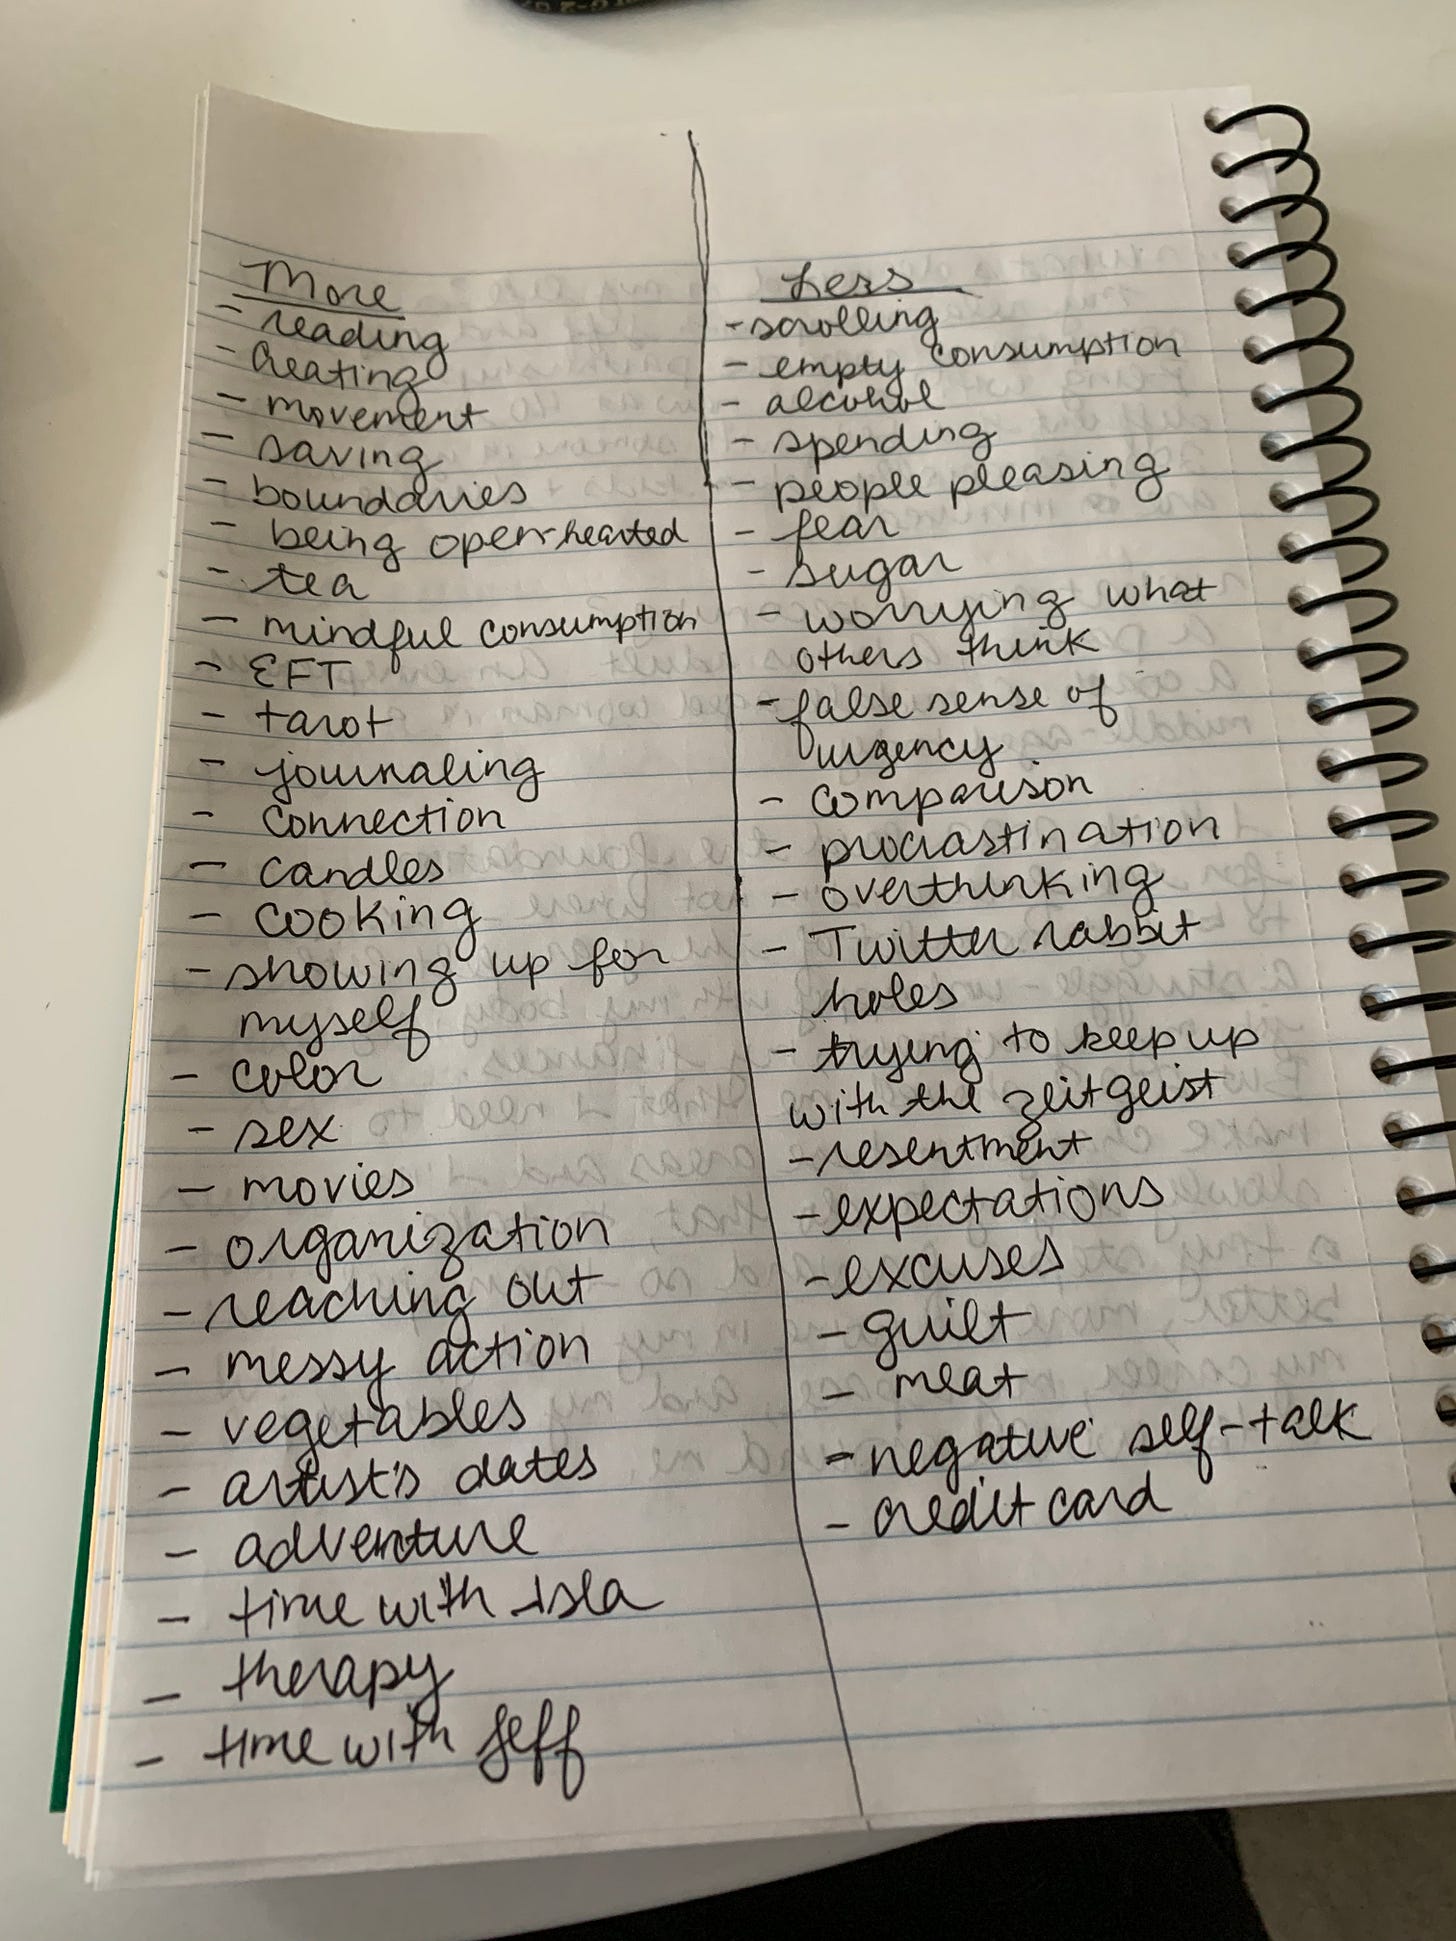 More
- reading
- creating
- movement
- saving
- boundaries
- being open-hearted
- tea
- mindful consumption
- EFT
- tarot
- journaling
- connection
- candles
- cooking
- showing up for
myself
- color
- sex
- movies
- organization
- reaching out
- messy action
- vegetables
- artist's dates
- adventure
- time with Isla
- therapy
- time with Jeff
Less
- scrolling
- empty consumption
- alcohol
- spending
- people pleasing
- fear
- sugar
- worrying what
others think
- false sense of
urgency
- comparison
- procrastination
- overthinking
- Twitter rabbit
holes
- trying to keep up
with the zeitgeist
- resentment
- expectations
- excuses
- guilt
- meat
- negative self-talk
- credit card